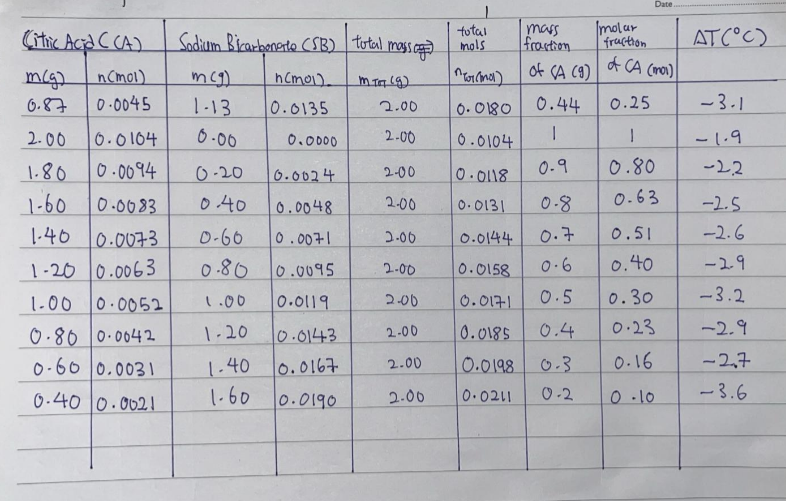 Date
Citric Acid (CA) Sodium Bicarbonate (SB) total mass total mols mass fraction molar fraction ΔT(°C)
m(g) n(mol) m(g) n(mol) m TOT (g) n TOT (mol) of CA (g) of CA (mol)
0.87 0.0045 1.13 0.0135 2.00 0.0180 0.44 0.25 -3.1
2.00 0.0104 0.00 0.0000 2.00 0.0104 1 1 -1.9
1.80 0.0094 0.20 0.0024 2.00 0.0118 0.9 0.80 -2.2
1.60 0.0083 0.40 0.0048 2.00 0.0131 0.8 0.63 -2.5
1.40 0.0073 0.60 0.0071 2.00 0.0144 0.7 0.51 -2.6
1.20 0.0063 0.80 0.0095 2.00 0.0158 0.6 0.40 -2.9
1.00 0.0052 1.00 0.0119 2.00 0.0171 0.5 0.30 -3.2
0.80 0.0042 1.20 0.0143 2.00 0.0185 0.4 0.23 -2.9
0.60 0.0031 1.40 0.0167 2.00 0.0198 0.3 0.16 -2.7
0.40 0.0021 1.60 0.0190 2.00 0.0211 0.2 0.10 -3.6